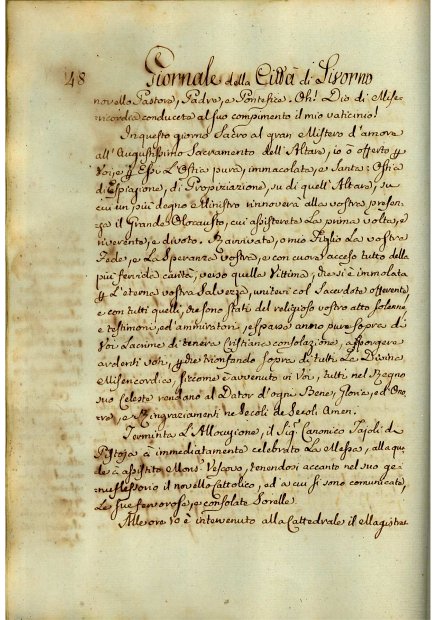 48 Giornale della Città di Livorno
novello Pastore, Padre, e Pontefice. Oh! Dio di Mise-
ricordia conducete al suo compimento il mio vaticinio!
In questo giorno Sacro al gran Mistero d'amore
all'Augustissimo Sacramento dell'Altare, io ò offerto p
Voi, e p Esso L'Ostia pura, immacolata, e Santa: Ostia
di Espiazione, di Propiziazione, su di quell'Altare, su
cui un più degno Ministro rinnoverà alla vostra presen-
za il Grande Olocausto, cui assisterete La prima volta, e
riverente, e divoto. Ravvivate, o mio Figlio La vostra
Fede, e La Speranza vostra, e con cuore acceso tutto della
più fervida carità, verso quella Vittima, che si è immolata
p L'eterna vostra Salvezza, unitevi col Sacerdote offerente,
e con tutti quelli, che sono stati del religioso vostro atto Solenne
e testimonj, ed ammiratori, e sparso anno pure sopra di
Voi Lacrime di tenera Cristiana consolazione, a porgere
ardenti voti, p che trionfando sopra di tutti La Divina
Misericordia, siccome è avvenuto in Voi, tutti nel Regno
suo Celeste rendano al Dator d'ogni Bene, Gloria, ed Ono-
re, e Ringraziamenti ne Secoli de Secoli Amen.
Terminta L'Allocuzione, il Sig.r Canonico Tajoli da
Pistoja à immediatamente celebrato La Messa, alla qua-
le à assistito Mons.r Vescovo, tenendosi accanto nel suo ge-
nuflessorio il novello Cattolico, ed a cui si sono comunicate,
Le sue fervorose, e consolate Sorelle.
Alle ore 10 è intervenuto alla Cattedrale il Magistra-